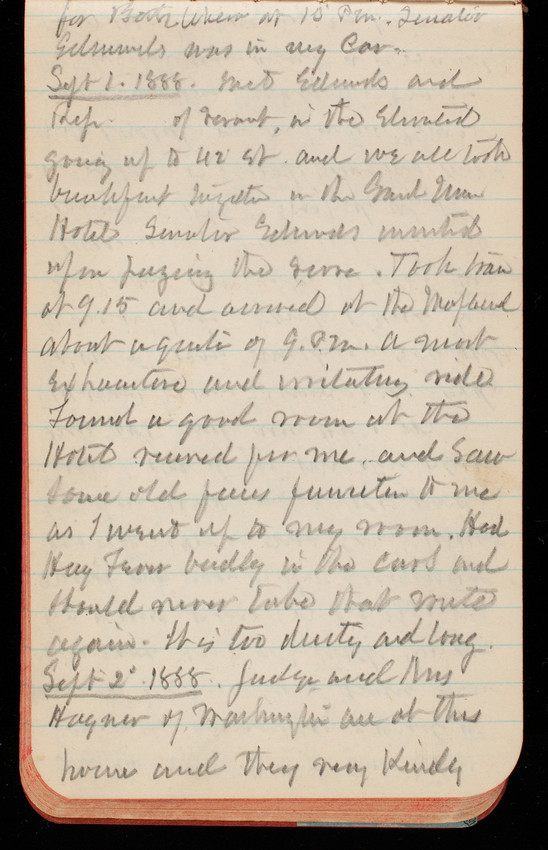 for Both when at 10 P.m. Senator
Edmunds was in my Car.
Sept 1. 1888. Met Edmunds and
Rep. of Vermont, in the Elevated
going up to 42 St. and we all took
breakfast together in the Grand Union
Hotel Senator Edmunds insisted
upon paying the score. Took train
at 9.15 and arrived at the
about a quarter of 9. P.m. A most
exhaustive and irritating ride
Found a good room at the
Hotel reserved for me, and saw
some old faces familiar to me
as I went up to my room. Had
Hay Fever badly in the cars and
should never take that route
again. It is too dusty and long.
Sept 2d. 1888. Judge and Mrs
Hagner of Washington are at this
house and they very kindly